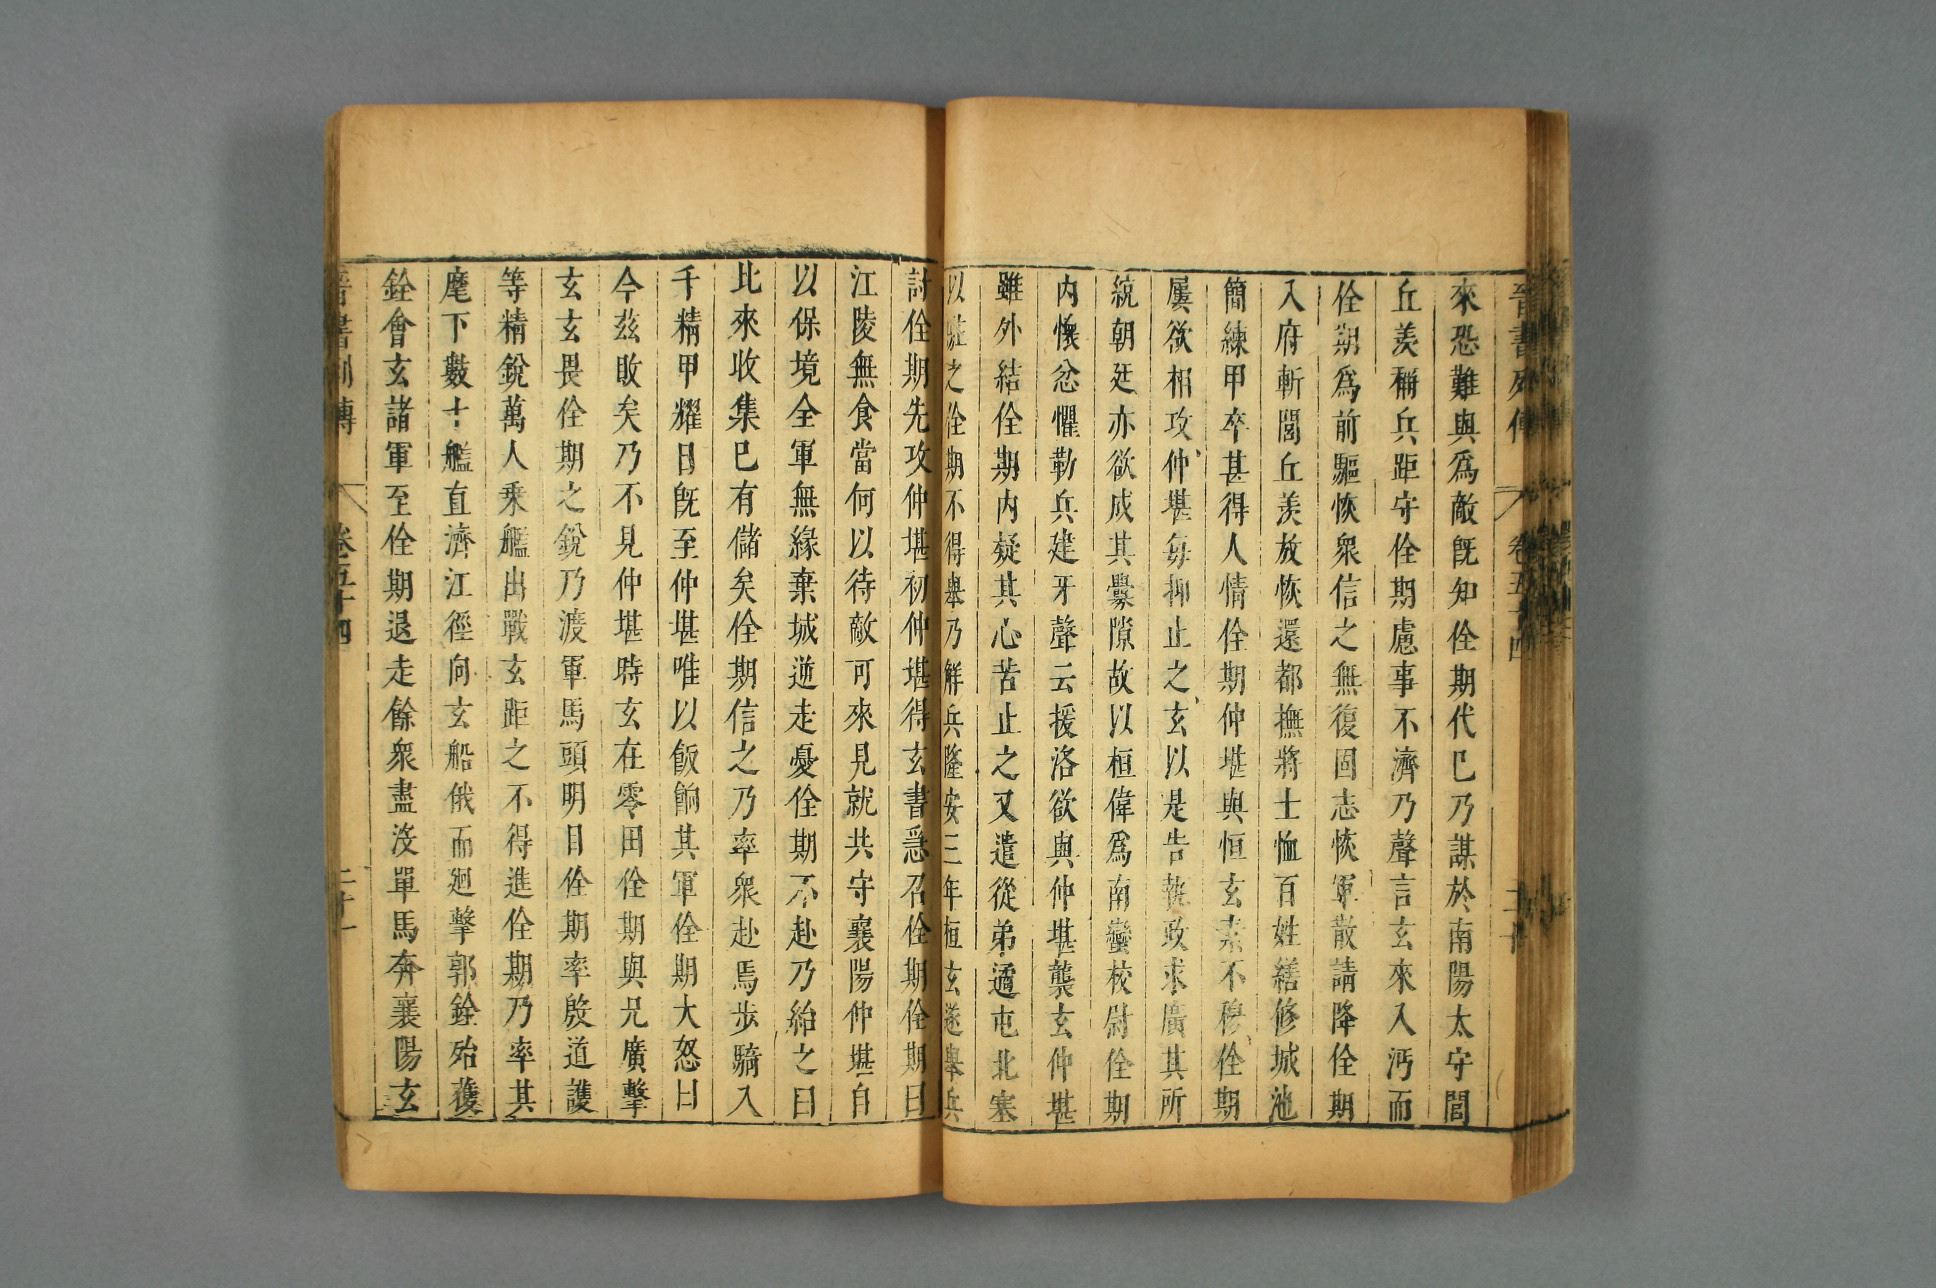 晉書列傳 卷五十四
來恐難與爲敵旣知佺期代巳乃謀於南陽太守閭
丘羨稱兵距守佺期慮事不濟乃聲言玄來入沔而
佺期爲前驅恢衆信之無復固志恢軍散請降佺期
入府斬閭丘羨放恢還都撫將士恤百姓繕修城池
簡練甲卒甚得人情佺期仲堪與恒玄素不穆佺期
屢欲相攻仲堪每抑止之玄以是告執政求廣其所
統朝廷亦欲成其釁隙故以桓偉爲南蠻校尉佺期
内懷忿懼勒兵建牙聲云援洛欲與仲堪襲玄仲堪
雖外結佺期内疑其心苦止之又遣從弟遹屯北塞
以駐之佺期不得舉乃解兵隆安三年桓玄遂舉兵
討佺期先攻仲堪初仲堪得玄書急召佺期佺期曰
江陵無食當何以待敵可來見就共守襄陽仲堪自
以保境全軍無緣棄城逆走憂佺期不赴乃紿之曰
比來收集巳有儲矣佺期信之乃率衆赴焉步騎入
千精甲耀日旣至仲堪唯以飯餉其軍佺期大怒曰
今茲敗矣乃不見仲堪時玄在零田佺期與兄廣擊
玄玄畏佺期之銳乃渡軍馬頭明日佺期率殷道護
等精銳萬人乘艦出戰玄距之不得進佺期乃率其
麾下數十艦直濟江徑向玄船俄而廻擊郭銓殆獲
銓會玄諸軍至佺期退走餘衆盡没單馬奔襄陽玄
晉書列傳 卷五十四 二十一